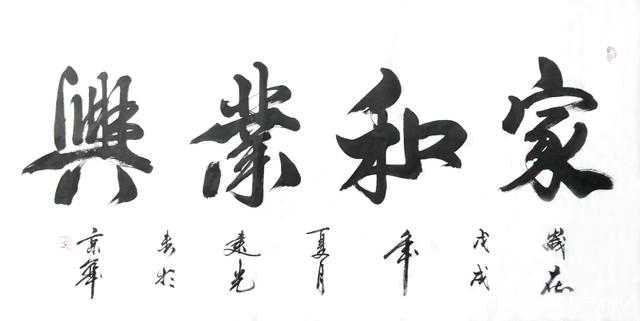 家和業興
歲在
戊戌
年
夏月
建光
書於
京華